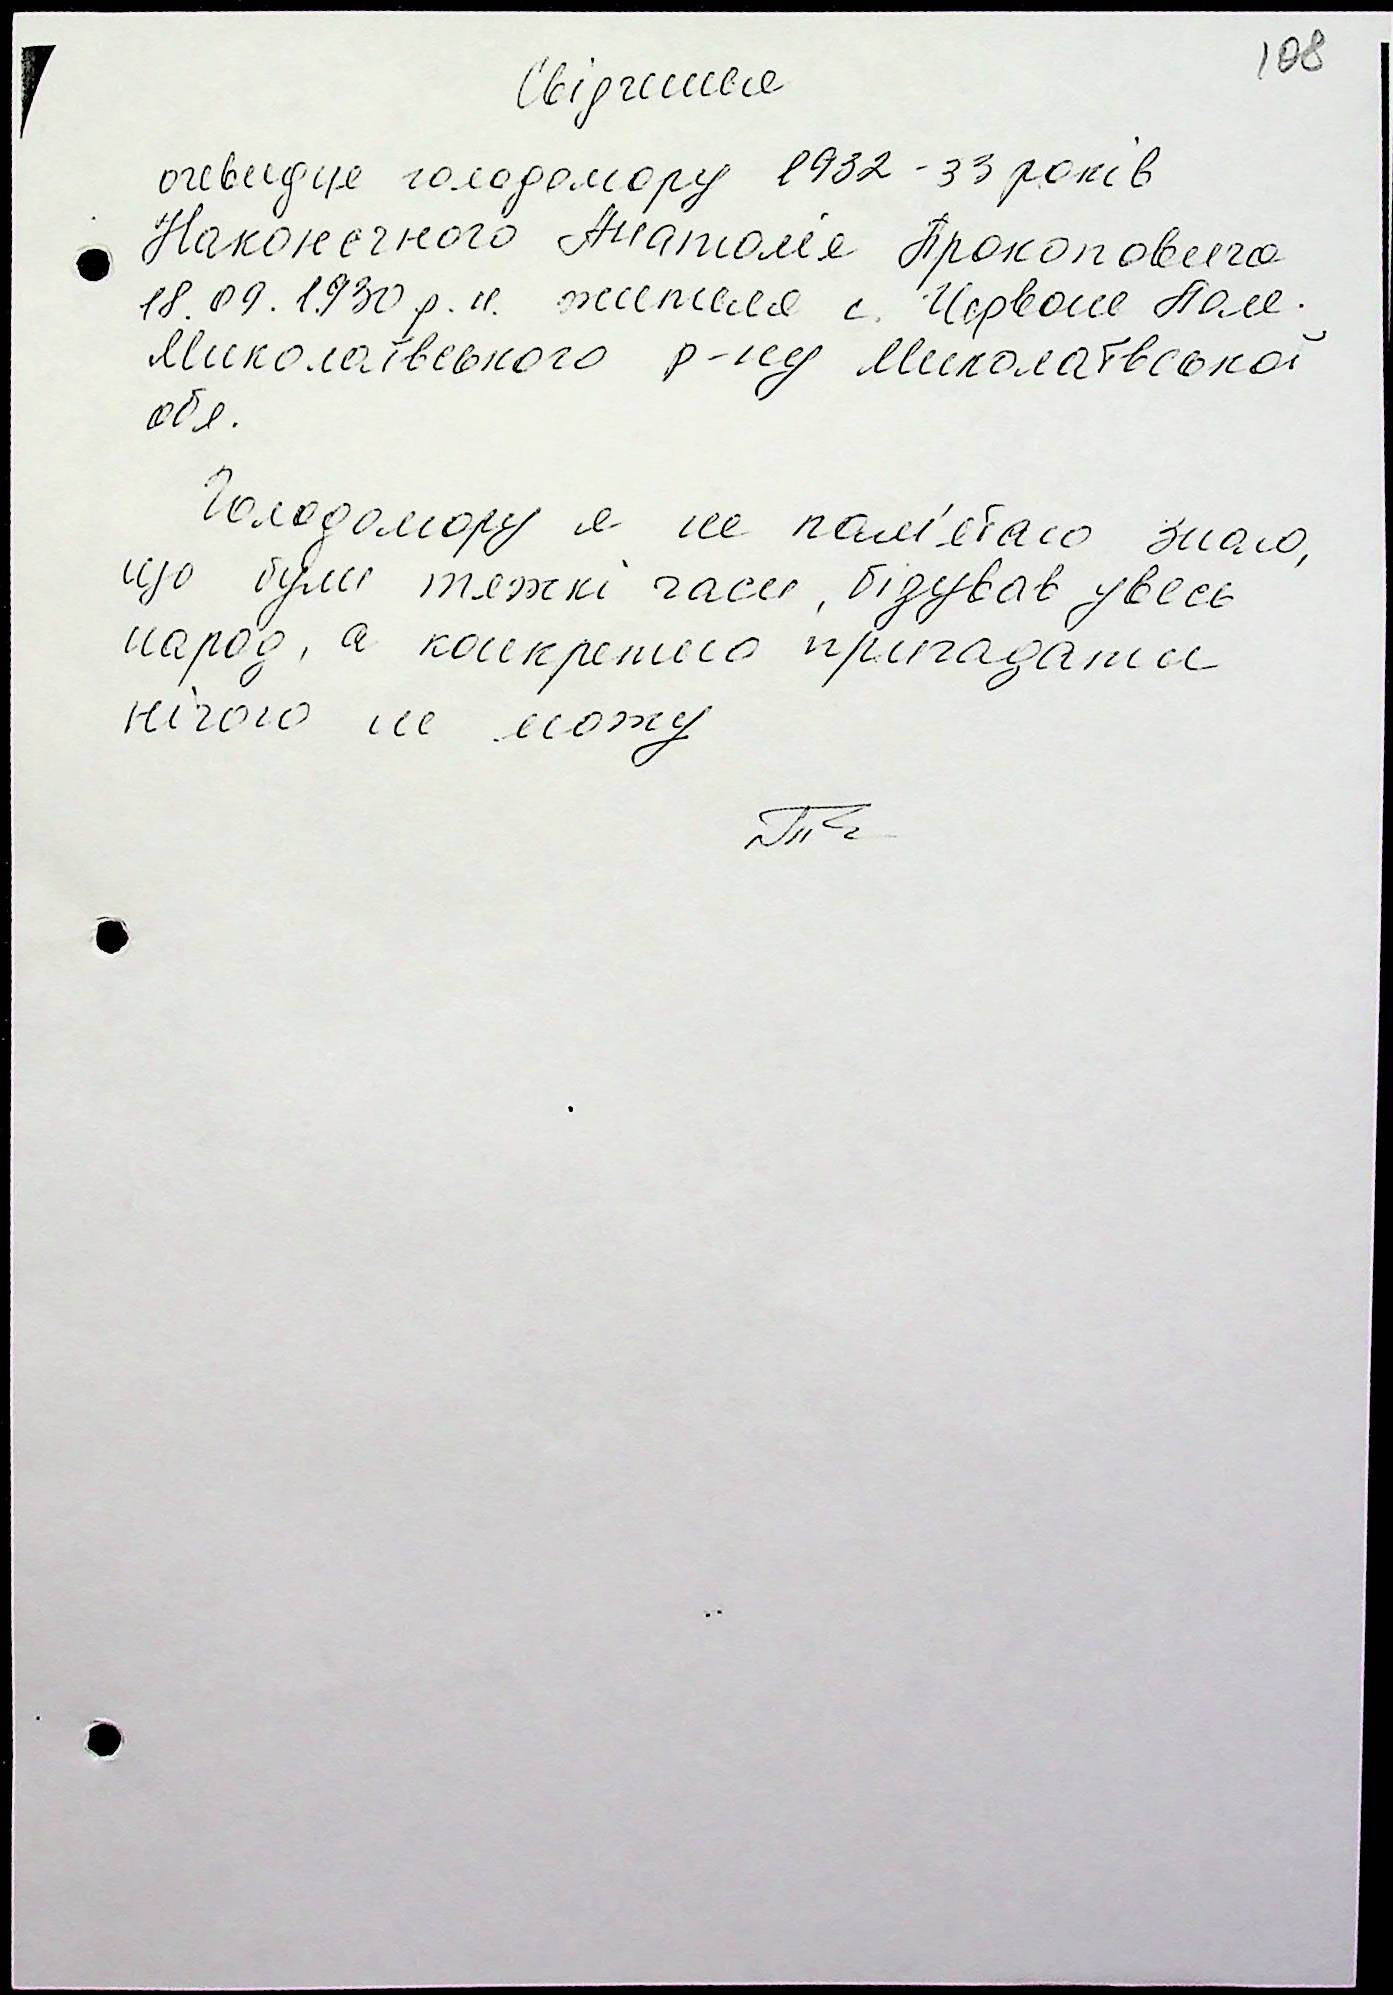 108
Свідчення
очевидця голодомору 1932-33 років
Наконечного Анатолія Прокоповича
18.09.1930 р.н. жителя с. Червоне Поле.
Миколаївського р-ну Миколаївської
обл.
Голодомору я не пам'ятаю знаю,
що були тяжкі часи, бідував увесь
народ, а конкретно пригадати
нічого не можу